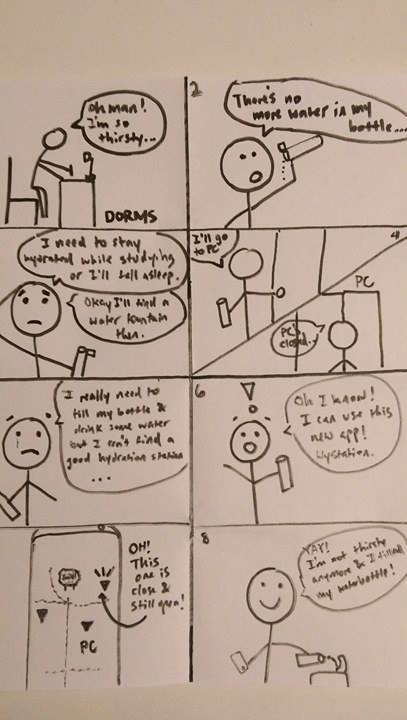 Oh man!
I'm so
thirsty...
DORMS
2
There's no
more water in my
bottle...
I need to stay
hydrated while studying
or I'll fall asleep.
Okay I'll find a
water fountain
then.
I'll go
to PC
4
PC
PC's
closed..
I really need to
fill my bottle &
drink some water
but I can't find a
good hydration station
...
6
Oh I know!
I can use this
new app!
Hystation.
OH!
This
one is
close &
still open!
PC
8
YAY!
I'm not thirsty
anymore & I filled
my waterbottle!